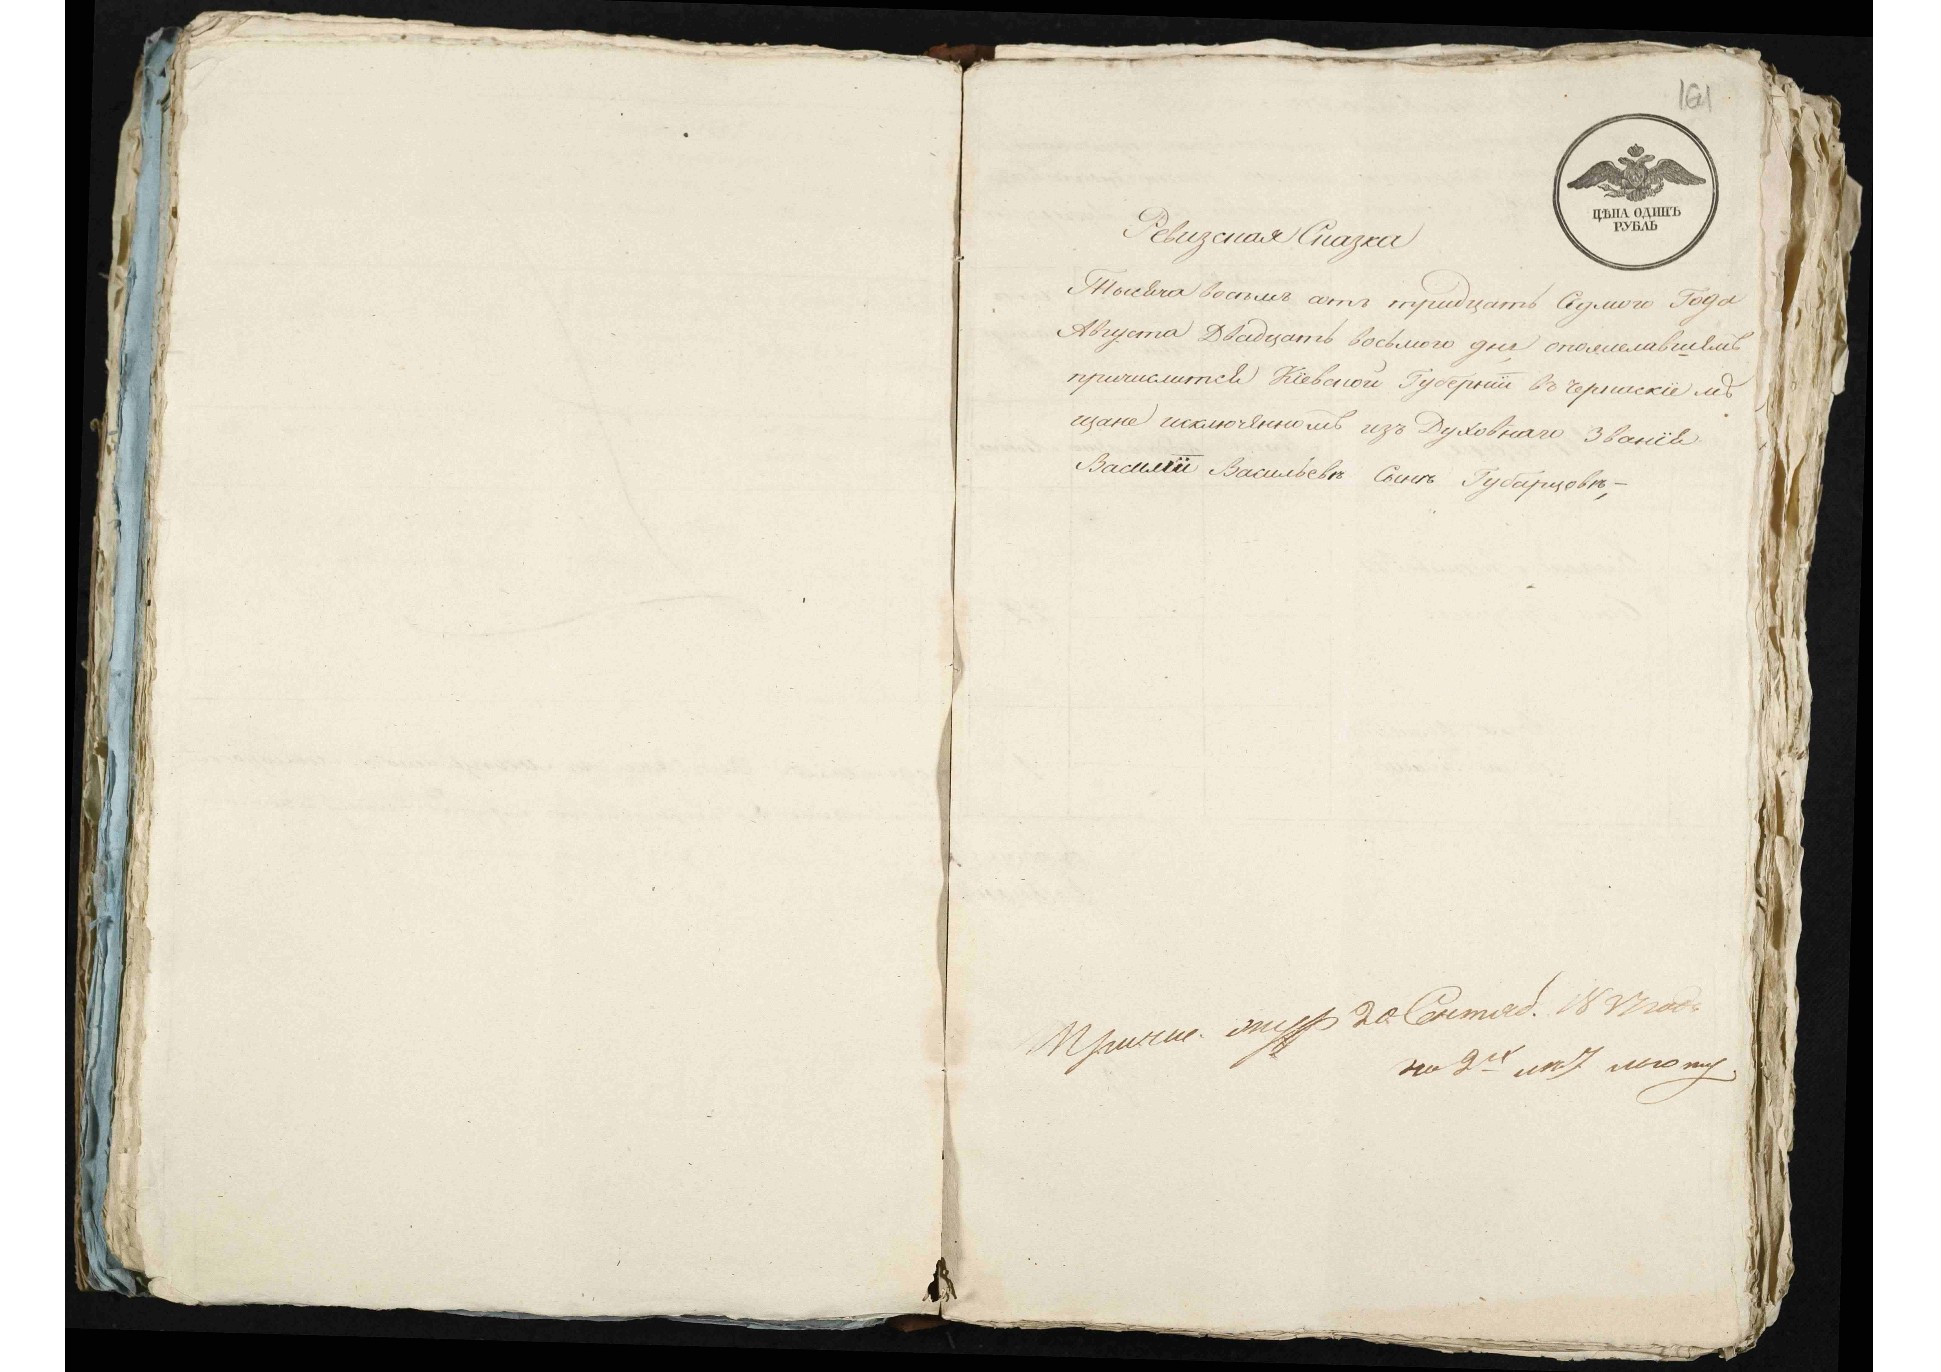 161
ЦѢНА ОДИНЪ
РУБЛЬ
Ревизская Сказка
Тысяча восемъ сотъ тридцать Седмого Года
Августа Двадцать восьмого дня опожелавшемъ
причислится Кіевской Губерніи въ Черкаскіе мѣ
щане исключенномъ изъ Духовнаго Званія
Василіи Васильевъ Сынъ Губарцовъ,—
20 Сентяб. 1837 года
на 2х